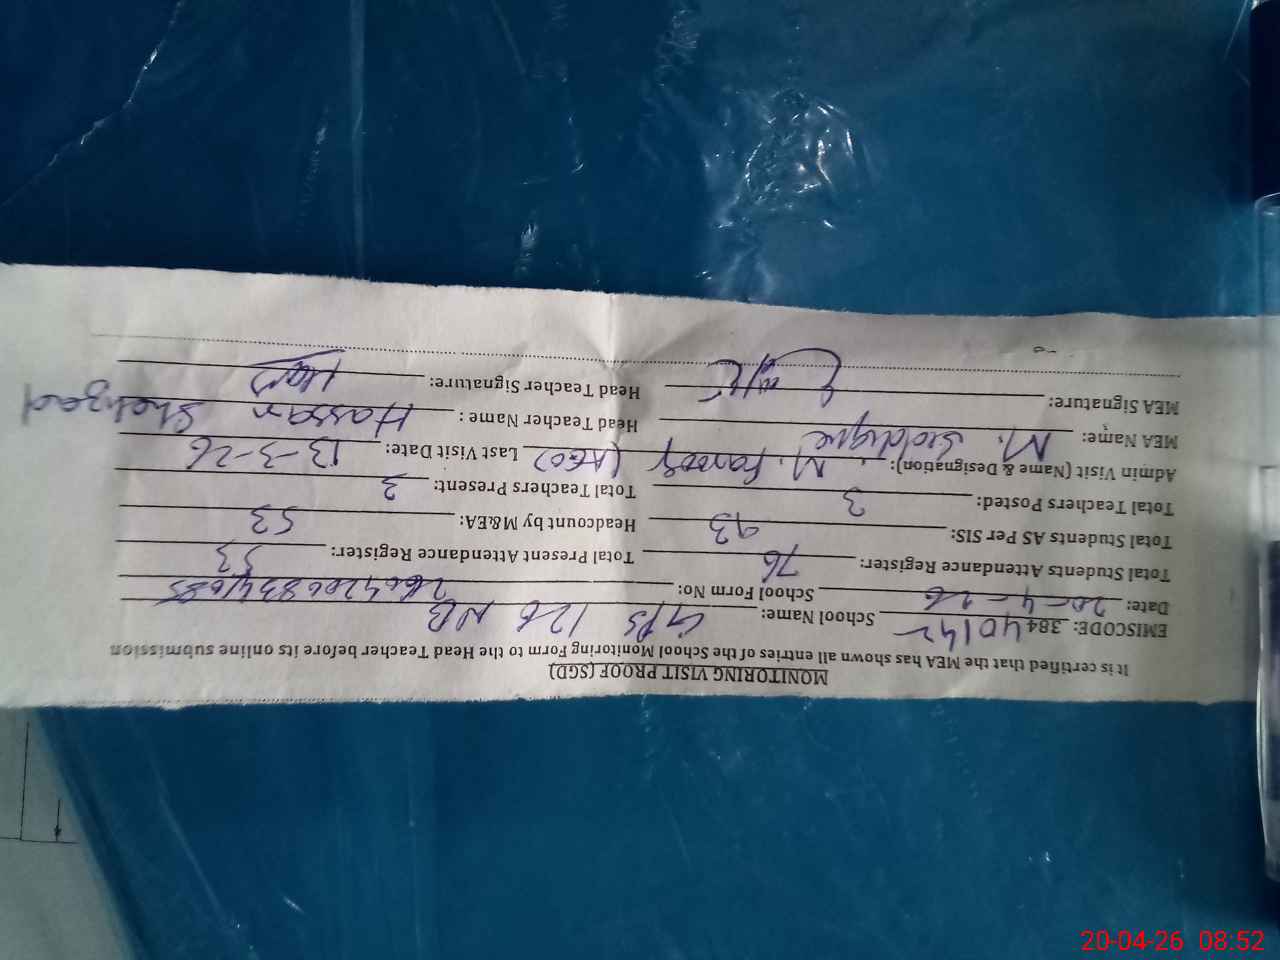 MONITORING VISIT PROOF (SGD)
It is certified that the MEA has shown all entries of the School Monitoring Form to the Head Teacher before its online submission
EMISCODE: 38440142 School Name: GPS 126 NB
Date: 20-4-26 School Form No:
Total Students Attendance Register: 76 Total Present Attendance Register: 53
Total Students AS Per SIS: 93 Headcount by M&EA: 53
Total Teachers Posted: 3 Total Teachers Present: 3
Admin Visit (Name & Designation): M. Farooq (AEO) Last Visit Date: 13-3-26
MEA Name: M. Siddique Head Teacher Name: Hassan Shahzad
MEA Signature: Head Teacher Signature:
20-04-26 08:52